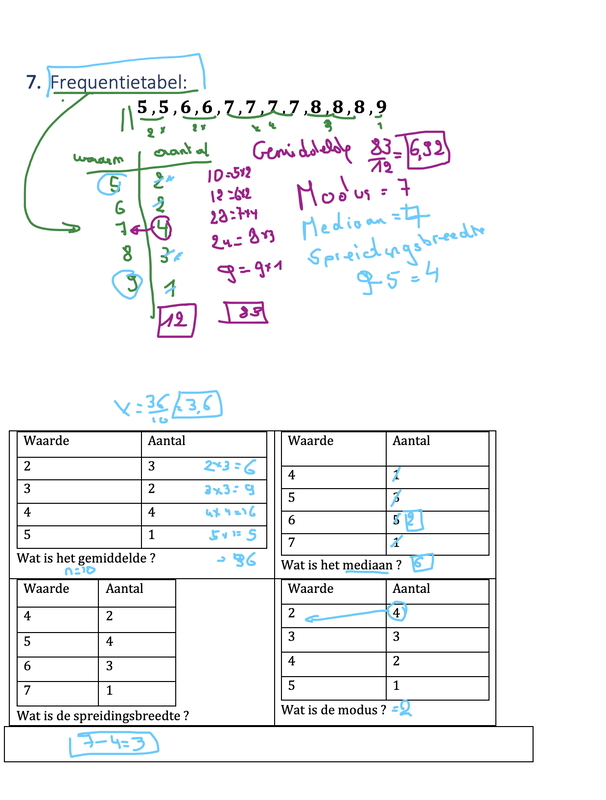 7. Frequentietabel:
5 , 5 , 6 , 6 , 7 , 7 , 7 , 7 , 8 , 8 , 8 , 9
2x 2x x 4 3 1
waarden aantal
5 2
6 2
7 4
8 3
9 1
12
10=5x2
12=6x2
28=7x4
24=8x3
9=9x1
83
Gemiddelde 83/12=6,92
Modus = 7
Mediaan = 7
Spreidingsbreedte
9-5=4
x = 36/10 = 3,6
Waarde Aantal
2 3 2x3=6
3 2 3x3=9
4 4 4x4=16
5 1 5x1=5
Wat is het gemiddelde ? = 36
n=10
Waarde Aantal
4 1
5 3
6 5 2
7 1
Wat is het mediaan ? 6
Waarde Aantal
4 2
5 4
6 3
7 1
Wat is de spreidingsbreedte ?
Waarde Aantal
2 4
3 3
4 2
5 1
Wat is de modus ? =2
7-4=3